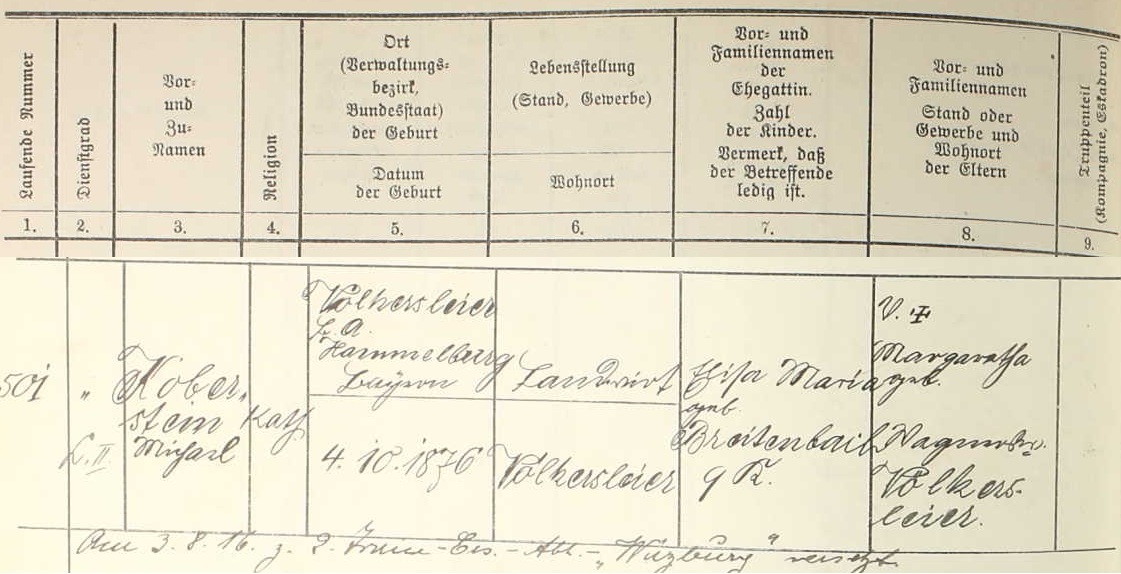 Laufende Nummer
Dienstgrad
Vor-
und
Zu-
Namen
Religion
Ort
(Verwaltungs-
bezirk,
Bundesstaat)
der Geburt
Datum
der Geburt
Lebensstellung
(Stand, Gewerbe)
Wohnort
Vor- und
Familiennamen
der
Ehegattin.
Zahl
der Kinder.
Vermerk, daß
der Betreffende
ledig ist.
Vor- und
Familiennamen
Stand oder
Gewerbe und
Wohnort
der Eltern
Truppenteil
(Kompagnie, Eskadron)
1.
2.
3.
4.
5.
6.
7.
8.
9.
501
"
L. II
Kober-
stein
Michael
Kath
Völkersleier
B. A.
Hammelburg
Bayern
4. 10. 1876
Landwirt
Völkersleier
Elisa Maria
geb.
Breitenbach
9 K.
V. ‡
Margaretha
geb.
Völkers-
leier.
Am 3. 8. 16. z. 2. Train-Ers.-Abt.- „Würzburg" versetzt.